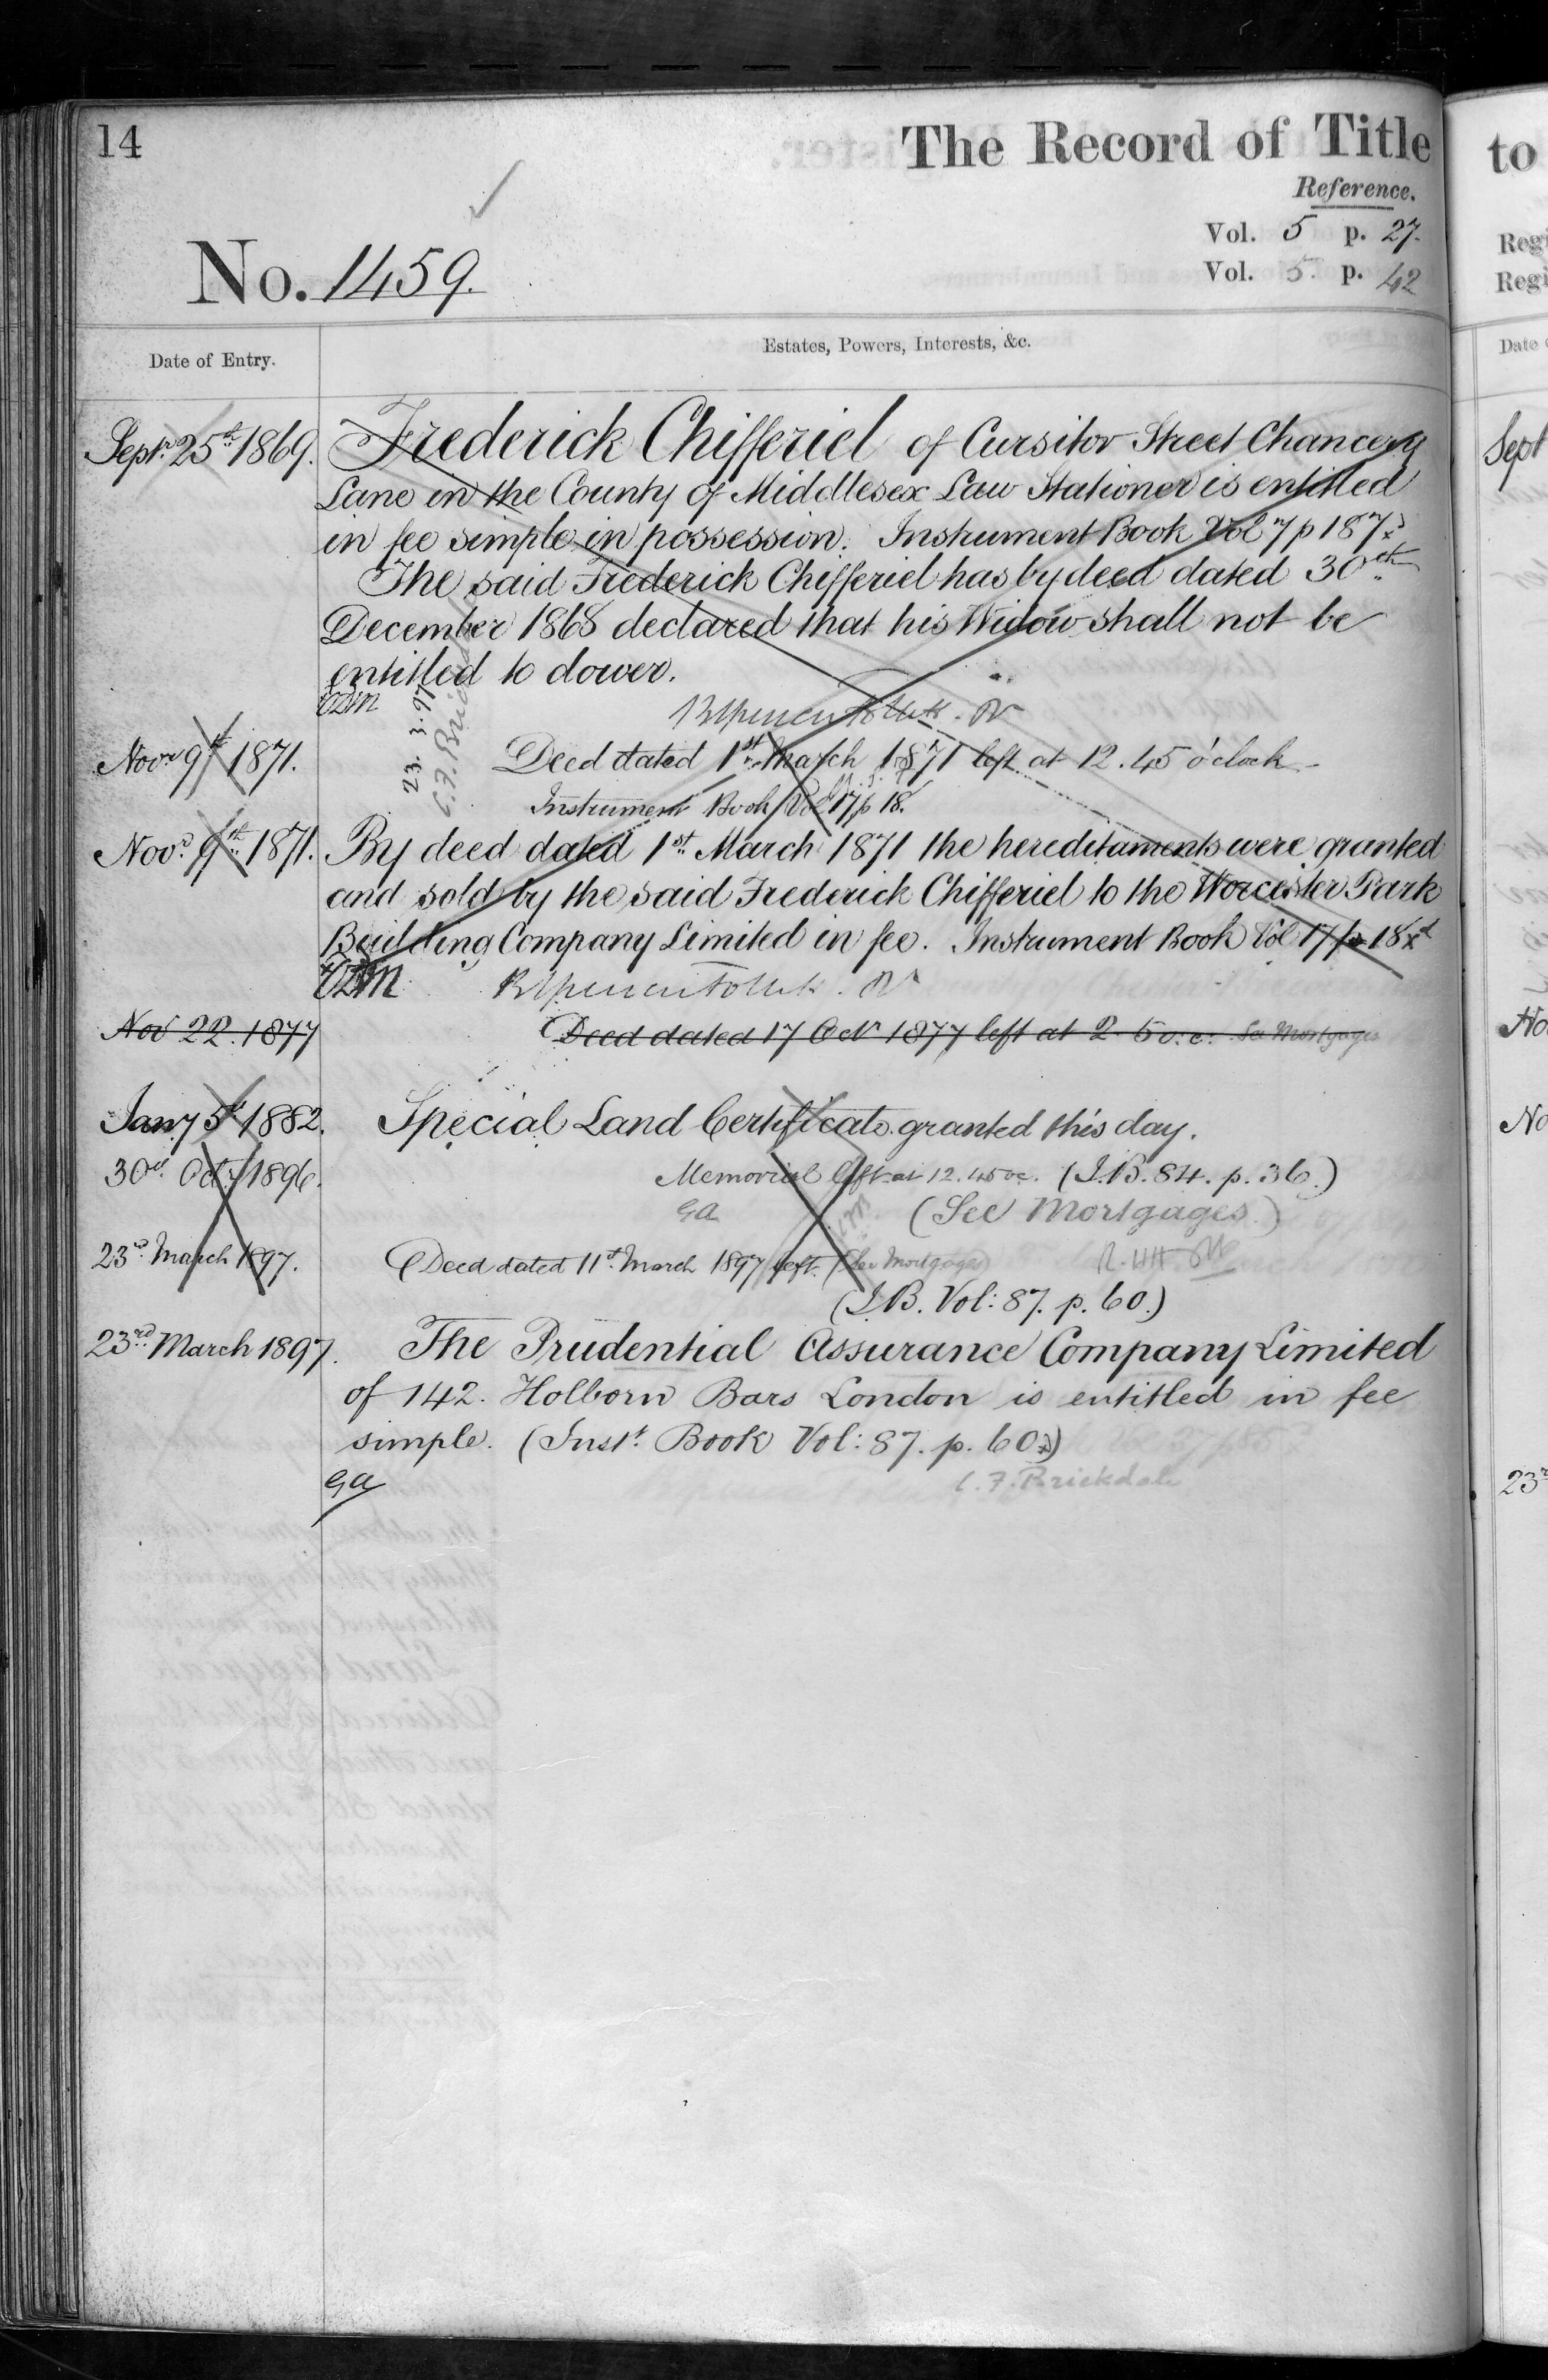 14
The Record of Title
Reference.
Vol. 5 p. 27.
Vol. 5. p. 42
No. 1459.
Date of Entry.
Estates, Powers, Interests, &c.
Septr 25th 1869. Frederick Chifferiel of Cursitor Street Chancery
Lane in the County of Middlesex Law Stationer is entitled
in fee simple in possession. Instrument Book Vol 7 p 187.
The said Frederick Chifferiel has by deed dated 30th
December 1868 declared that his Widow shall not be
entitled to dower.
23. 3. 97
C. F. Brickdale
Novr 9th 1871. Deed dated 1st March 1871 left at 12.45 o'clock
Instrument Book Vol 17 p 18.
Novr 9th 1871. By deed dated 1st March 1871 the hereditaments were granted
and sold by the said Frederick Chifferiel to the Worcester Park
Building Company Limited in fee. Instrument Book Vol 17 p 18
Nov 22. 1877 Deed dated 17 Octr 1877 left at 2. 5 o.c. See Mortgages
Jany 5th 1882. Special Land Certificate granted this day.
30th Oct. 1896. Memorial left at 12.45 o.c. (I.B. 84. p. 36.)
GA (See Mortgages.)
23rd March 1897. Deed dated 11th March 1897 left. (See Mortgages)
(I.B. Vol: 87. p. 60.)
23rd March 1897. The Prudential Assurance Company Limited
of 142. Holborn Bars London is entitled in fee
simple. (Inst. Book Vol: 87. p. 60.)
GA
C. F. Brickdale
to
Regi
Regi
Date
Sept
No
No
23r